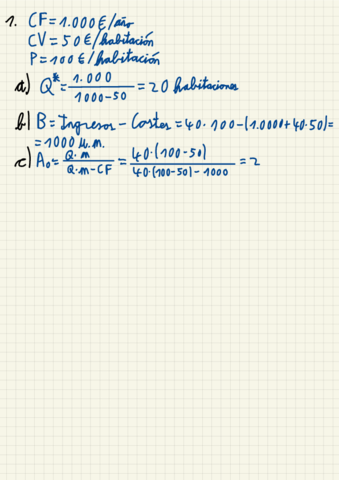 1. CF = 1.000 €/año
CV = 50 €/habitación
P = 100 €/habitación
a) Q* = 1.000 / 1000-50 = 20 habitaciones
b) B = Ingresos - Costes = 40·100-(1.0000+40·50)=
= 1000 u.m.
c) A₀ = Q·m / Q·m-CF = 40·(100-50) / 40·(100-50)-1000 = 2